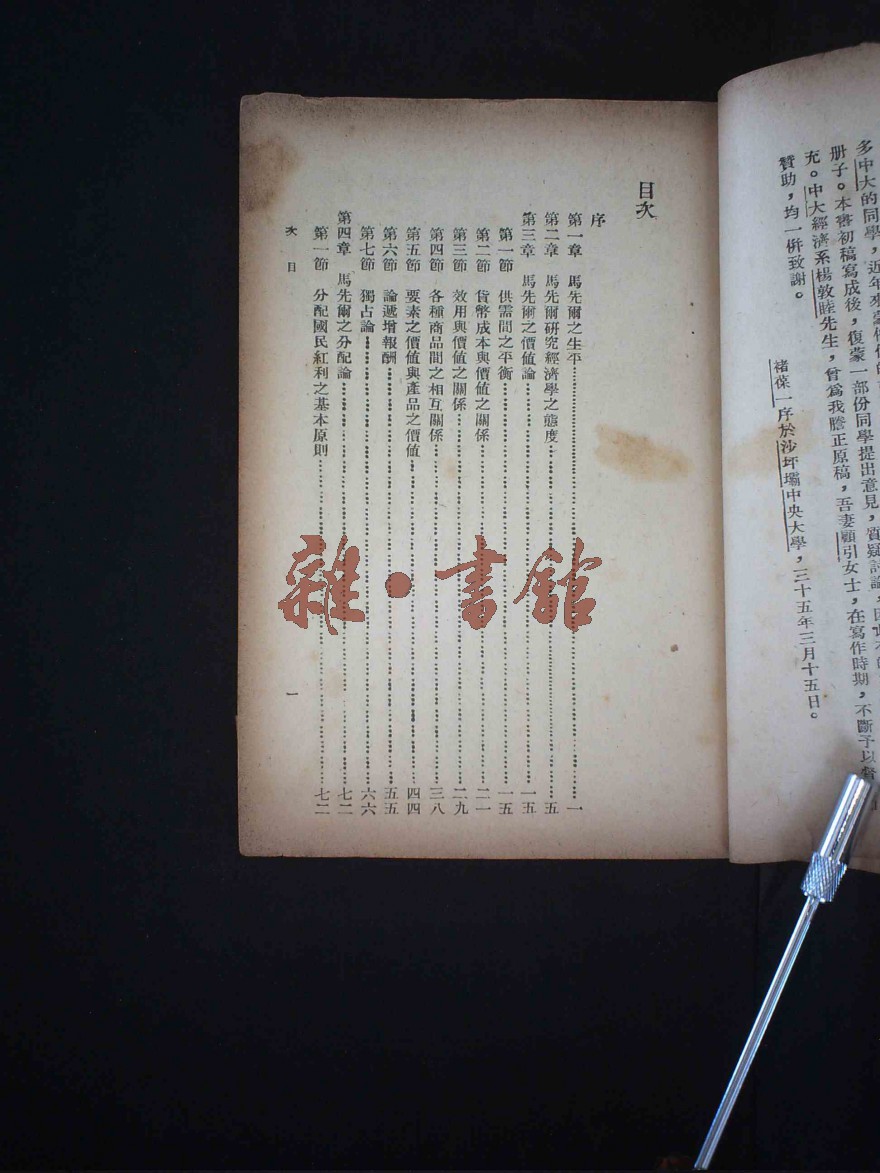 多中大的同學，近年來蒙
册子。本書初稿寫成後，復蒙一部份同學提出意見，質疑討論，因此
充。中大經濟系楊敦睦先生，曾爲我謄正原稿，吾妻顧引女士，在寫作時期，不斷予以
贊助，均一併致謝。
褚葆一序於沙坪壩中央大學，三十五年三月十五日。
目次
序
第一章　馬先爾之生平……一
第二章　馬先爾研究經濟學之態度……五
第三章　馬先爾之價値論……一五
第一節　供需間之平衡……一五
第二節　貨幣成本與價値之關係……二一
第三節　效用與價値之關係……二九
第四節　各種商品間之相互關係……三八
第五節　要素之價値與產品之價値……四四
第六節　論遞增報酬……五五
第七節　獨占論……六六
第四章　馬先爾之分配論……七二
第一節　分配國民紅利之基本原則……七二
次目
一
雜·書館